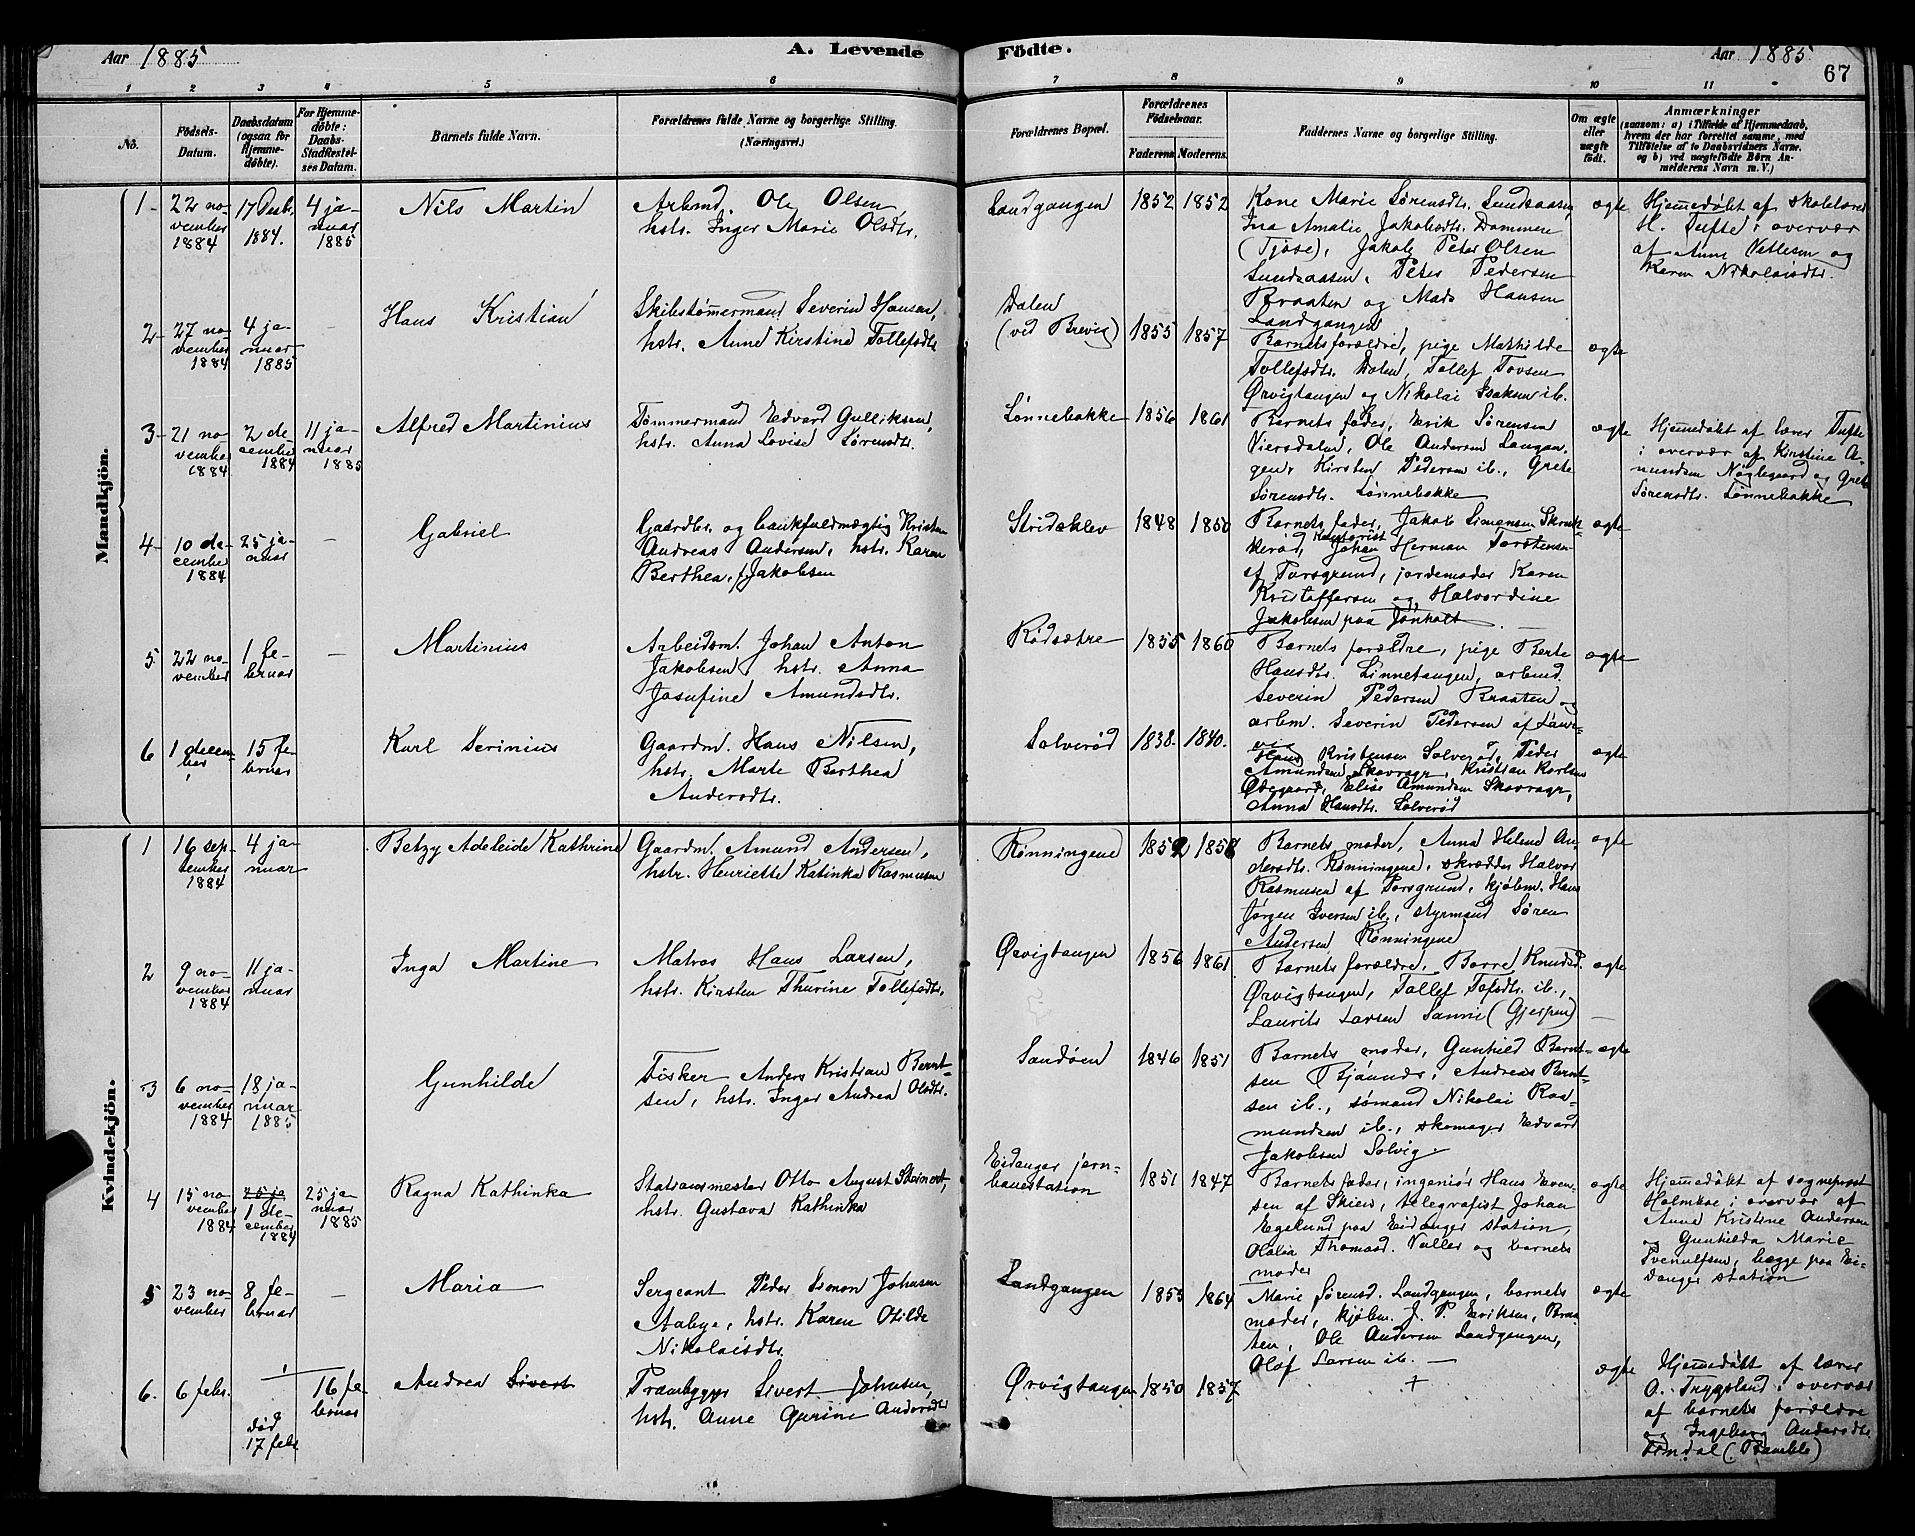 Aar 1885
A. Levende
Födte.
Aar 1885
67
1 2 3 4 5 6 7 8 9 10 11
No.
Födsels-
Datum.
Daabsdatum
(ogsaa for
Hjemme-
döbte).
For Hjemme-
döbte:
Daabs-
Stadfæstel-
ses Datum.
Barnets fulde Navn.
Forældrenes fulde Navne og borgerlige Stilling.
(Næringsvei.)
Forældrenes Bopæl.
Forældrenes
Födselsaar.
Faderens. Moderens.
Faddernes Navne og borgerlige Stilling.
Om ægte
eller
uægte
født.
Anmærkninger
(saasom: a) i Tilfælde af Hjemmedaab,
hvem der har forrettet samme, med
Tilföielse af to Daabsvidners Navne,
og b) ved uægtefödte Börn An-
melderens Navn m. V.)
Mandkjön.
1 -
22 no-
vember
1884
17 Decbr.
1884.
4 ja-
nuar
1885
Nils Martin
Arbmd. Ole Olsen,
hstr. Inger Marie Olsdtr.
Landgangen
1852
1852
Kone Marie Sørensdtr. Lundsaasen
Ina Amalie Jakobsdtr. Dammene
(Tjøse), Jakob Peter Olsen
Lundsaasen, Peter Pedersen
Braaten og Mads Hansen
Landgangen
ægte
Hjemmedøbt af skolelærer
H. Tufte i overvær
af Anne Vetlesen og
Karen Nikolaisdtr.
2 -
27 no-
vember
1884
4 ja-
nuar
1885
-
Hans Kristian
Skibstømmermand Severin Hansen,
hstr. Anne Kirstine Tollefsdtr.
Dalen
(ved Brevig)
1855
1857
Barnets forældre, pige Mathilde
Tollefsdtr. Dalen, Tollef Tovsen
Ørvigtangen og Nikolai Isaksen ib.
ægte
3 -
21 no-
vember
1884
2 de-
cember
1884
11 ja-
nuar
1885
Alfred Martinius
Tømmermand Edvard Gulliksen,
hstr. Anna Lovise Sørensdtr.
Lønnebakke
1856
1861
Barnets fader, Erik Sørensen
Viersdalen, Ole Andersen Langan-
gen, Kirsten Pedersen ib., Grete
Sørensdtr. Lønnebakke
ægte
Hjemmedøbt af lærer Tufte
i overvær af Kirstine A-
mundsen Nøglegaard og Grete
Sørensdtr. Lønnebakke
4 -
10 de-
cember
1884
25 ja-
nuar
-
Gabriel
Gaardbr. og bankfuldmægtig Kristen
Andreas Andersen, hstr. Karen
Berthea, f. Jakobsen
Stridsklev
1848
1850
Barnets fader, Jakob Simonsen Skruk-
kerød, kontorist Johan Herman Torstensen
af Porsgrund, jordemoder Karen
Kristoffersen og Halvordine
Jakobsen paa Jønholt
ægte
5
22 no-
vember
1 fe-
bruar
-
Martinius
Arbeidsm. Johan Anton
Jakobsen hstr. Anna
Josefine Amundsdtr.
Rødsætre
1855
1860
Barnets forældre, pige Berte
Hansdtr. Linnetangen, arbmd.
Severin Pedersen Braaten og
arbm. Severin Pedersen af Laur-
vig
ægte
6
1 decem-
ber
15 fe-
bruar
Karl Serinius
Gaardm. Hans Nilsen,
hstr. Marte Berthea
Andersdtr.
Solverød
1838.
1840.
Hans Kristensen Solverød, Peder
Amundsen Skavrager, Kristian Karlsen
Ødegaard, Elise Amundsen Skavrager,
Anna Hansdtr. Solverød
ægte
Kvindekjön.
1
16 sep-
tember
1884
4 ja-
nuar
Betzy Adeleide Kathrine
Gaardm. Amund Andersen,
hstr. Henriette Katinka Rasmusen
Rønningene
1852
1858
Barnets moder, Anna Helene An-
dersdtr. Rønningene, skrædder Halvor
Rasmusen af Porsgrund, kjøbm. Hans
Jørgen Iversen ib., styrmand Søren
Andersen Rønningene
ægte
2
9 no-
vember
1884
11 ja-
nuar
Inga Martine
Matros Hans Larsen,
hstr. Kirsten Thurine Tollefsdtr.
Ørvigtangen
1856
1861
Barnets forældre, Borre Knudsd.
Ørvigtangen, Tollef Tofsdtr. ib.,
Laurits Larsen Sanni (Gjerpen)
ægte
3
6 no-
vember
1884
18 ja-
nuar
1885
Gunhilde
Fisker Anders Kristian Bernt-
sen, hstr. Inger Andrea Olsdtr.
Sandøen
1846
1851
Barnets moder, Gunhild Bernt-
sen Bjønnes, Andreas Bernt-
sen ib., sømand Nikolai Ras-
mundsen ib., skomager Edvard
Jakobsen Solvig.
ægte
4
15 no-
vember
1884
25 ja
1 de-
cember
1884
25 ja-
nuar
1885
Ragna Kathinka
Stationsmester Otto August Steinort,
hstr. Gustava Kathinka
Eidanger jern-
banestation
1851
1847
Barnets fader, ingeniør Hans Even-
sen af Skien, telegrafist Johan
Egelund paa Eidanger station,
Olalia Thomasd. Valler og barnets
moder
ægte
Hjemmedøbt af sogneprest
Holmboe i overvær af
Anne Kristine Andersen
og Gunhilda Marie
Svenulfsen, begge paa Ei-
danger station
5
23 no-
vember
8 fe-
bruar
-
Maria
Sergeant Peder Simon Johnsen
Aabye, hstr. Karen Otilde
Nikolaisdtr.
Landgangen
1855
1864
Marie Sørensd. Landgangen, barnets
moder, kjøbm. J. P. Eriksen, Braa-
ten, Ole Andersen Landgangen,
Olaf Larsen ib. —
ægte
6.
6 febr.
død
17 febr
16 fe-
bruar
Andrea Sivert
Prambygger Sivert Johnsen,
hstr. Anne Gurine Andersdtr.
Ørvigtangen
1850
1857
+
ægte
Hjemmedøbt af lærer
O. Trygsland i overvær
af barnets forældre
og Ingeborg Andersdtr.
Omdal (Bamble)